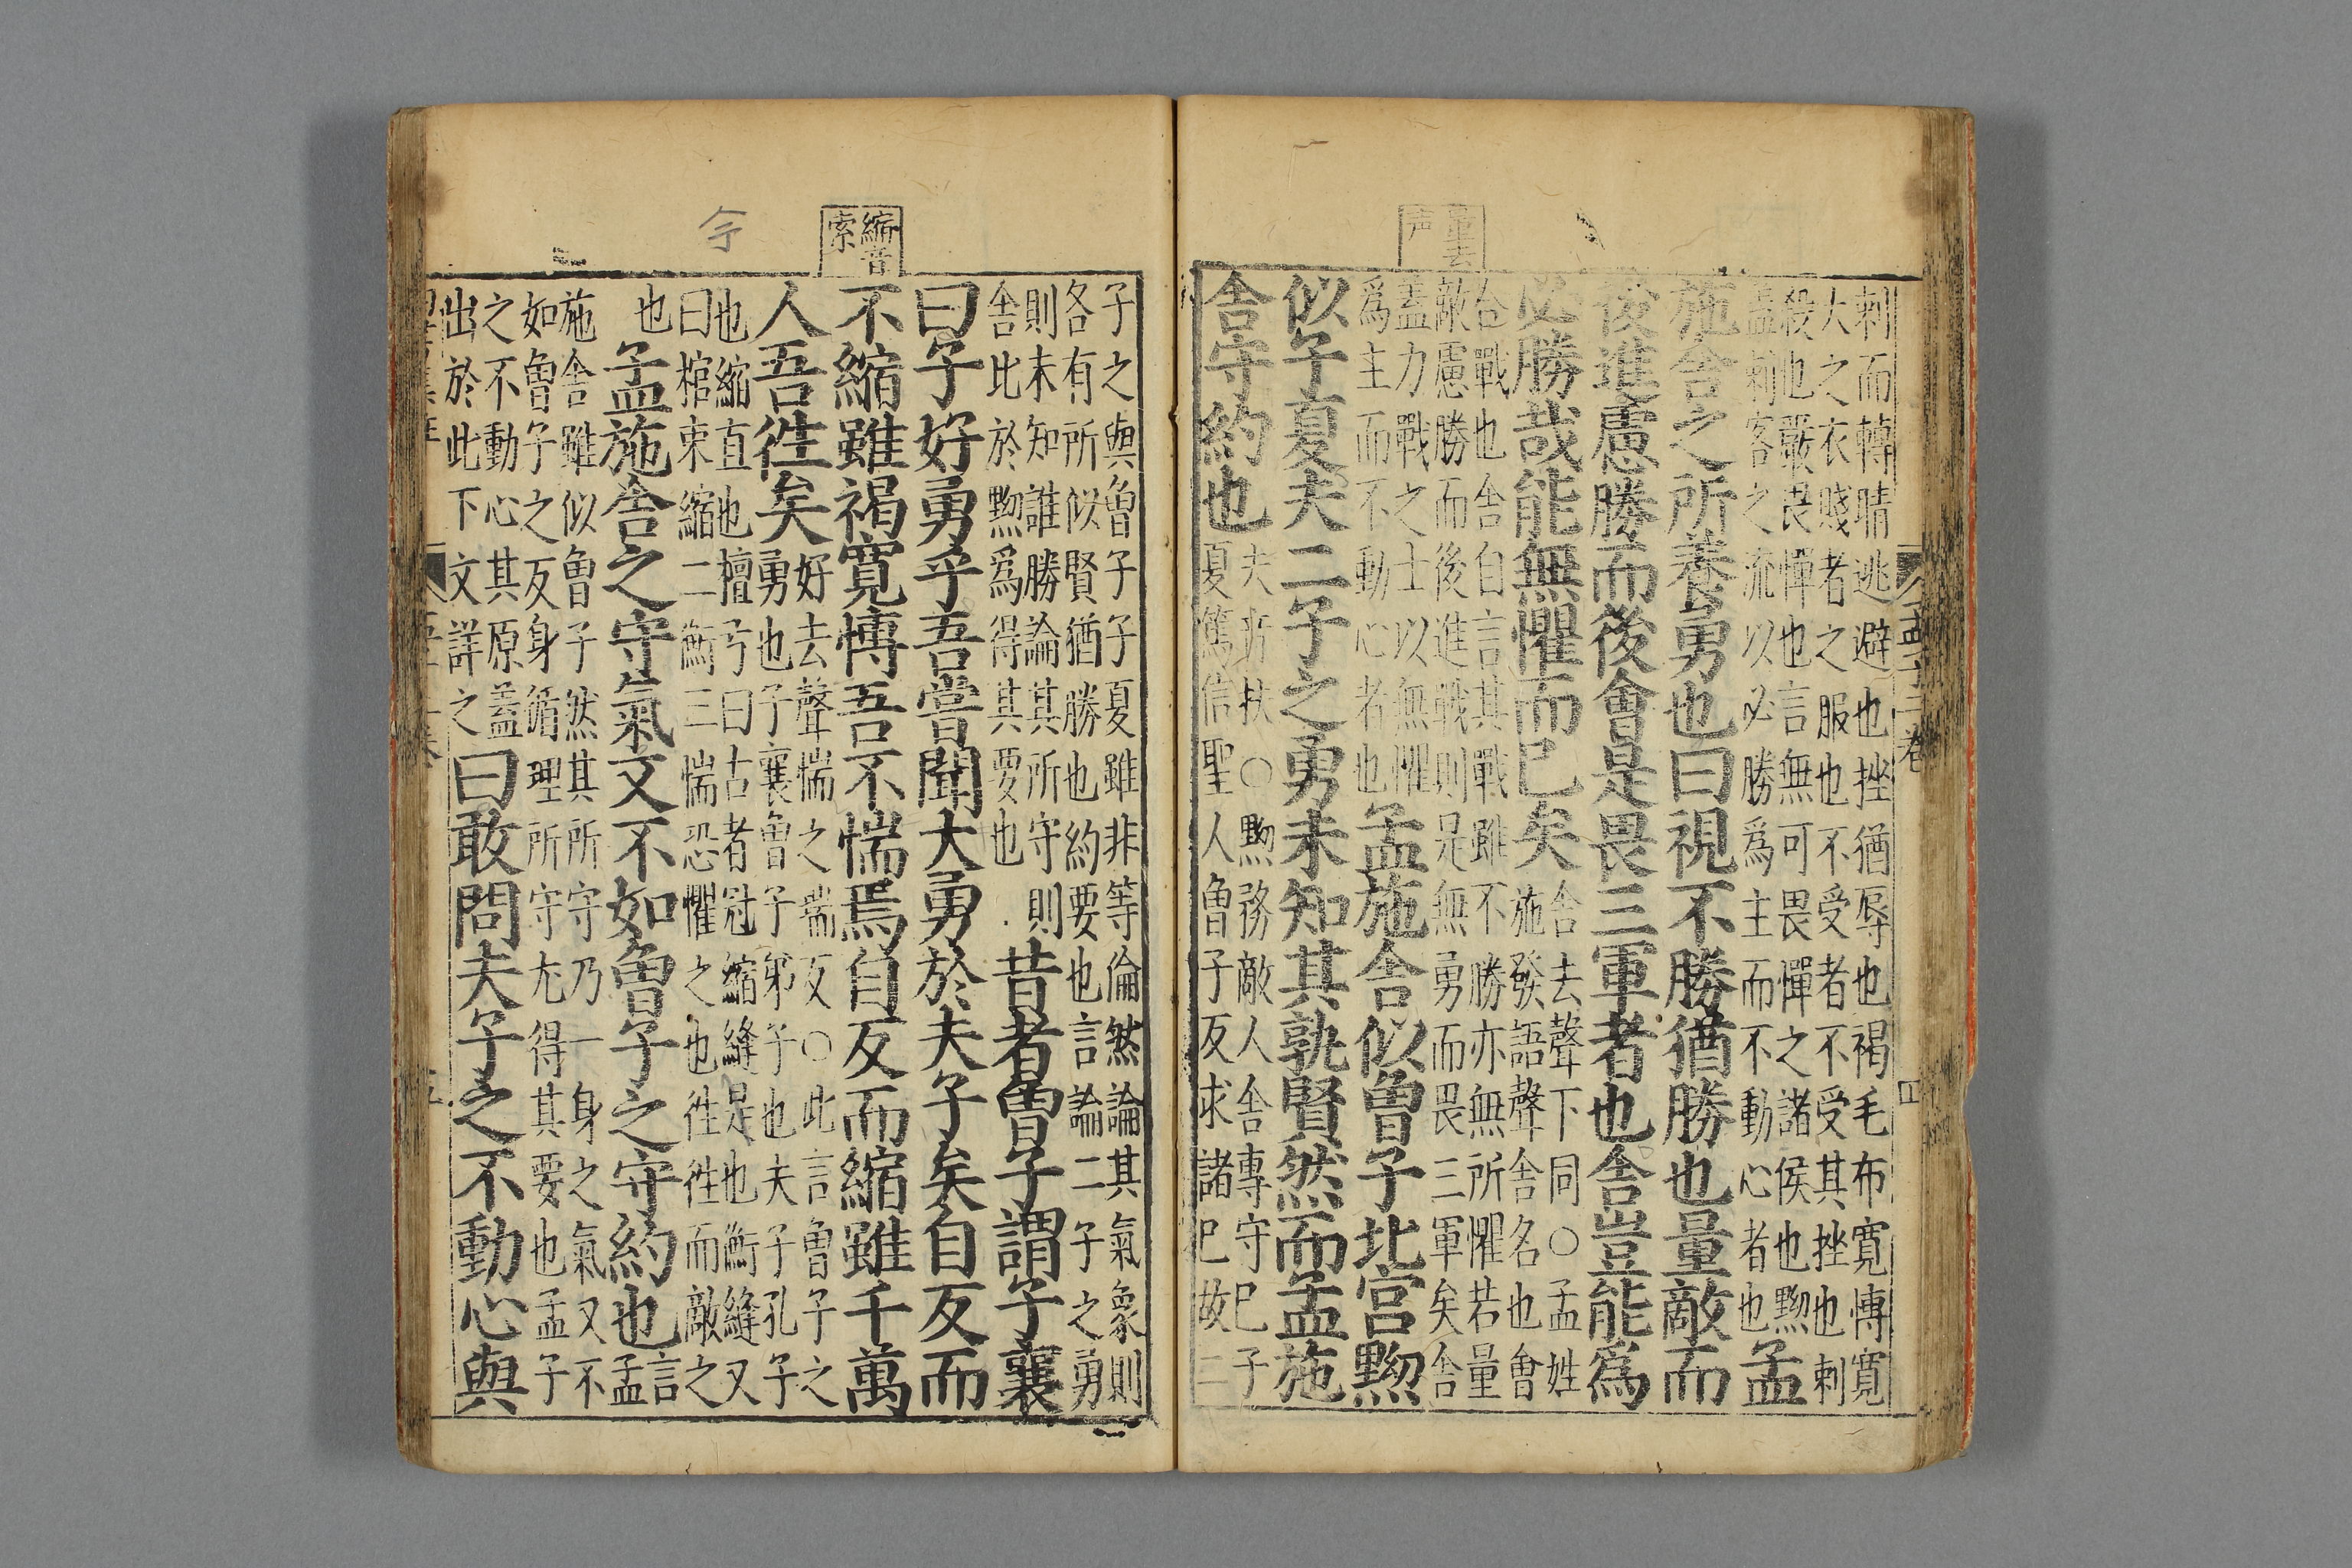 孟子二卷 四
量去
声
刺而轉睛逃避也挫猶辱也褐毛布寬博寬
大之衣賤者之服也不受者不受其挫也刺
殺也嚴畏憚也言無可畏憚之諸侯也黝
蓋刺客之流以必勝爲主而不動心者也孟
施舍之所養勇也曰視不勝猶勝也量敵而
後進慮勝而後會是畏三軍者也舍豈能爲
必勝哉能無懼而已矣
舍去聲下同○孟姓
施發語聲舍名也會
合戰也舍自言其戰雖不勝亦無所懼若量
敵慮勝而後進戰則是無勇而畏三軍矣舍
蓋力戰之士以無懼
爲主而不動心者也
孟施舍似曾子北宮黝
似子夏夫二子之勇未知其孰賢然而孟施
舍守約也
夫音扶○黝務敵人舍專守己子
夏篤信聖人曾子反求諸己故二
縮音
索
今
子之與曾子子夏雖非等倫然論其氣象則
各有所似賢猶勝也約要也言論二子之勇
則未知誰勝論其所守則
舍比於黝爲得其要也
昔者曾子謂子襄
曰子好勇乎吾嘗聞大勇於夫子矣自反而
不縮雖褐寬博吾不惴焉自反而縮雖千萬
人吾往矣
好去聲惴之瑞反○此言曾子之
勇也子襄曾子弟子也夫子孔子
也縮直也檀弓曰古者冠縮縫是也衡縫又
曰棺束縮二衡三惴恐懼之也往往而敵之
也
孟施舍之守氣又不如曾子之守約也
言
孟
施舍雖似曾子然其所守乃一身之氣又不
如曾子之反身循理所守尤得其要也孟子
之不動心其原蓋
出於此下文詳之
曰敢問夫子之不動心與